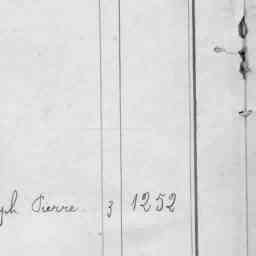 ph Pierre 3 1252